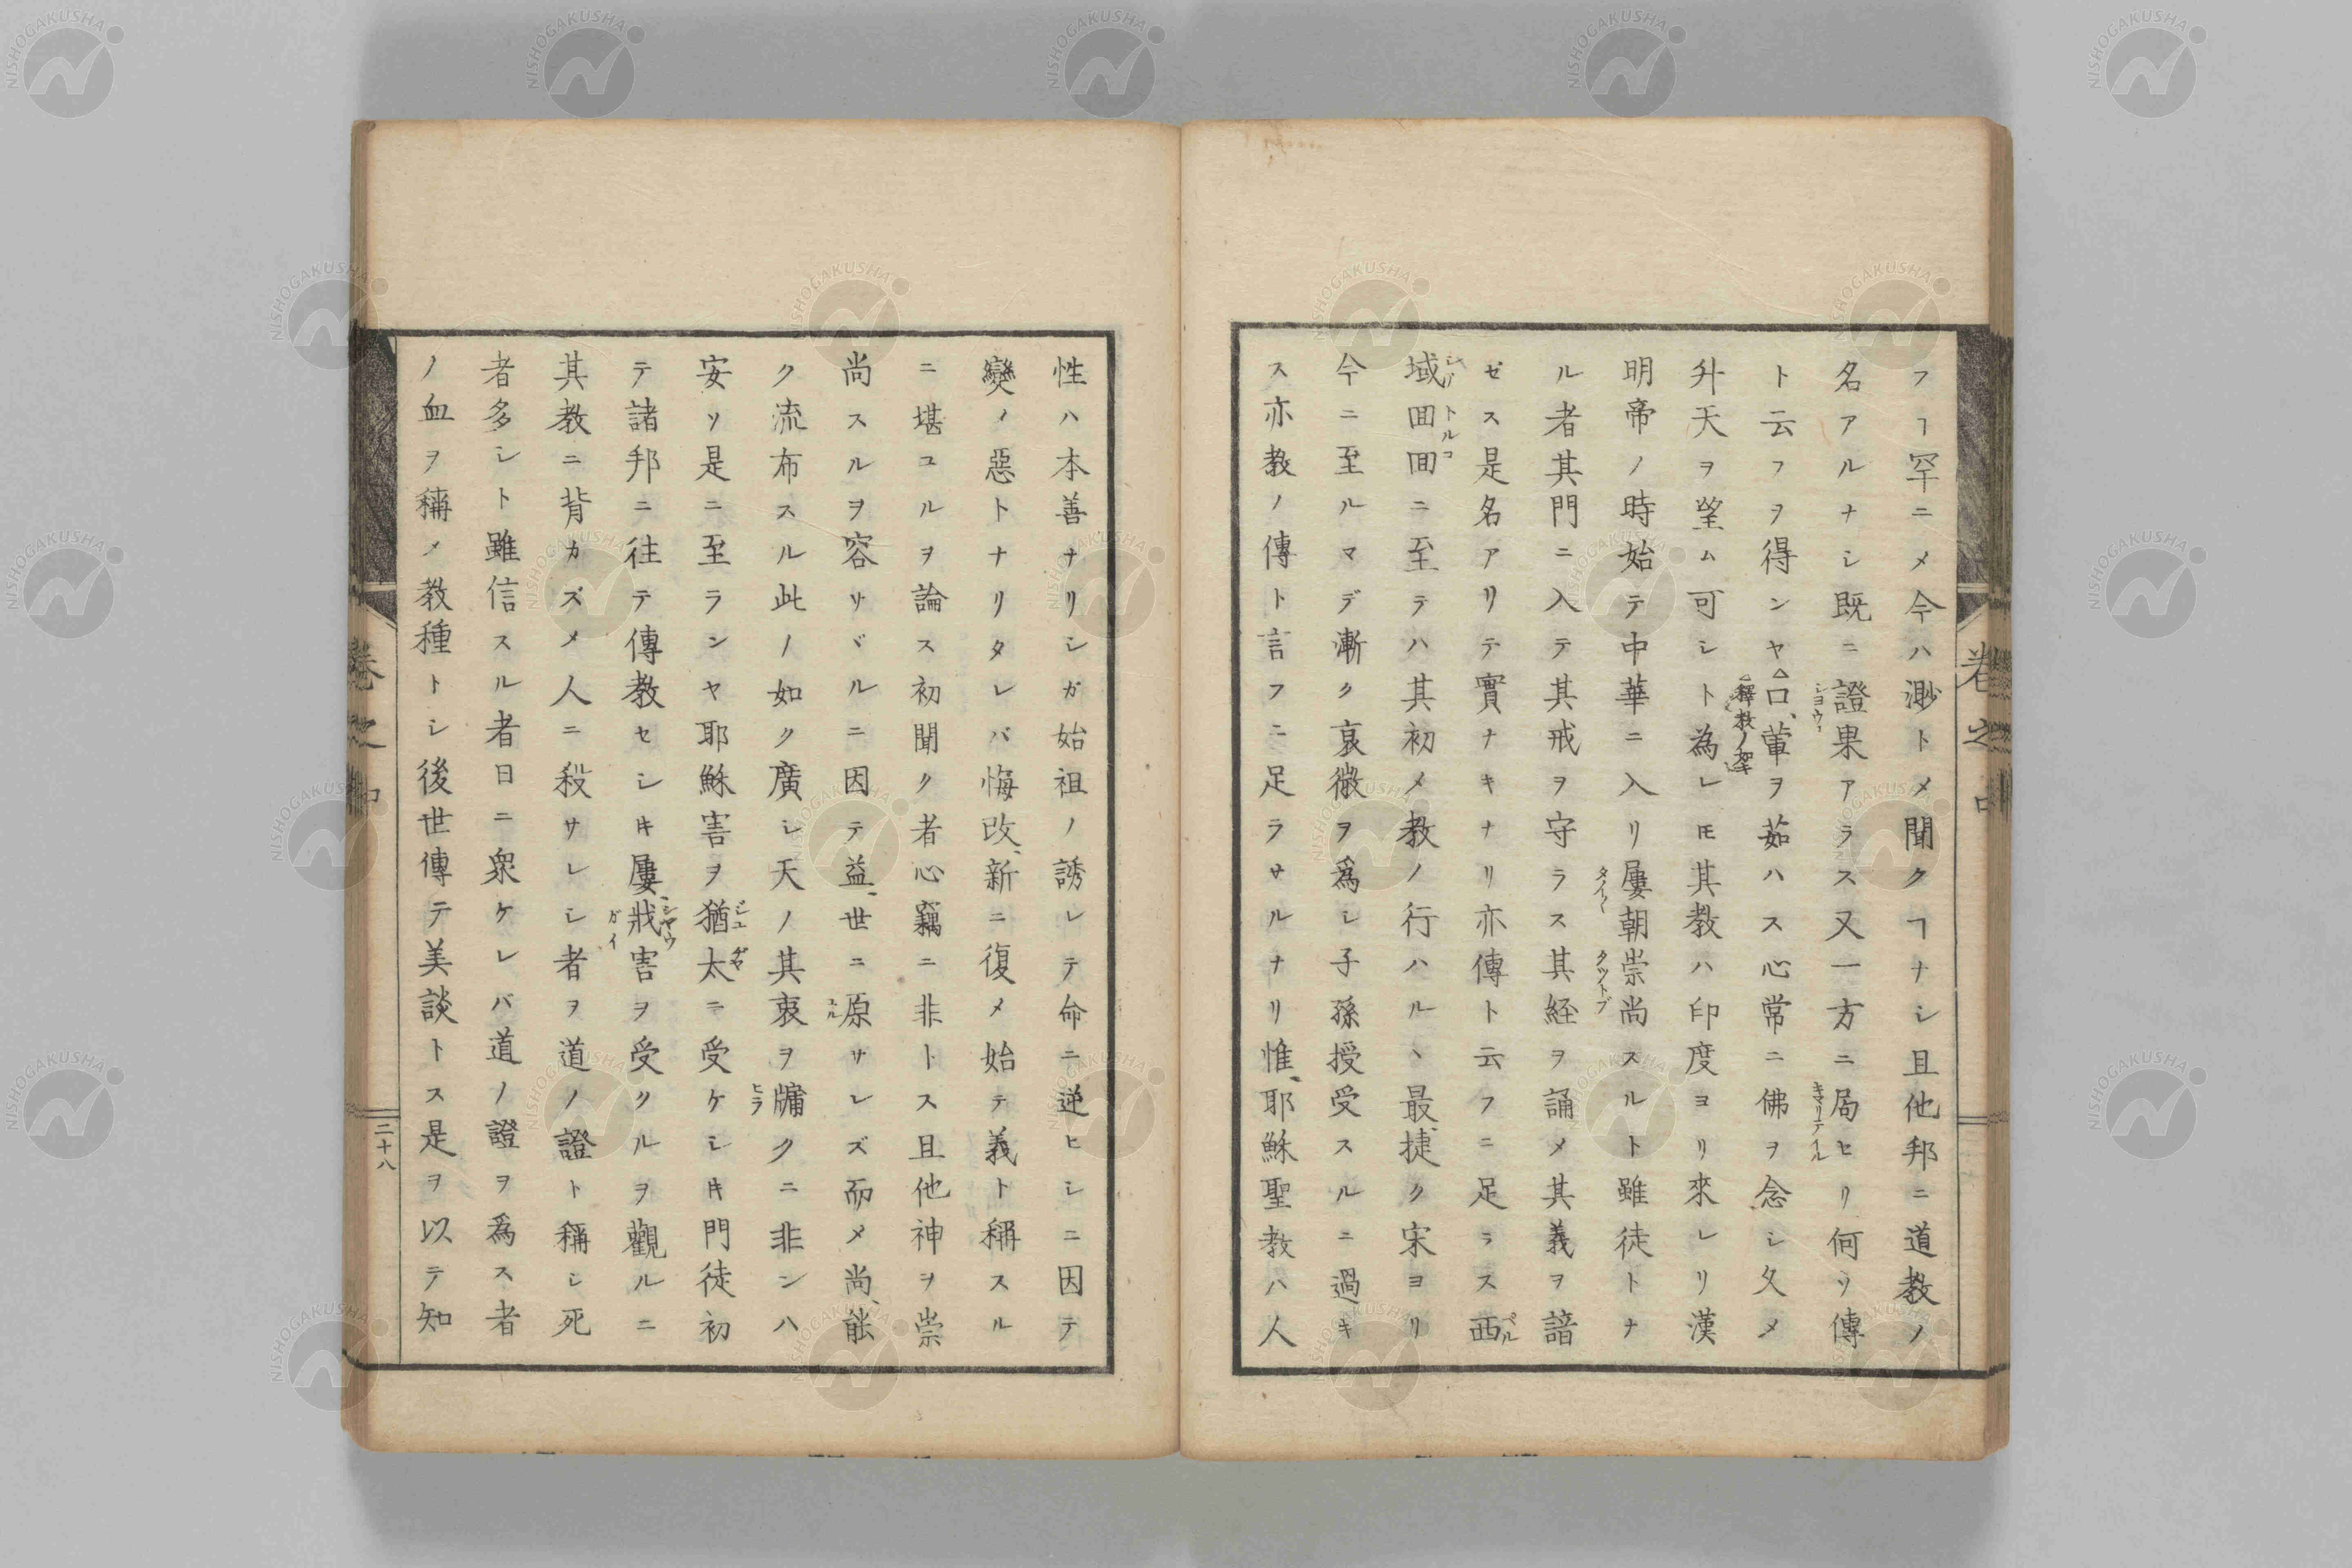 フヿ罕ニメ今ハ渺トメ聞クヿナシ且他邦ニ道教ノ
名アルナシ既ニ證果アラス又一方ニ局ヒリ何ソ傳
ト云フヲ得ンヤ口葷ヲ茹ハス心常ニ佛ヲ念シ久メ
升天ヲ望ム可シト為レ𪜈其教ハ印度ヨリ來レリ漢
明帝ノ時始テ中華ニ入リ屢朝崇尚スルト雖徒トナ
ル者其門ニ入テ其戒ヲ守ラス其経ヲ誦メ其義ヲ諳
ゼス是名アリテ實ナキナリ亦傳ト云フニ足ラス西
域回回ニ至テハ其初メ教ノ行ハルヽ最捷ク宋ヨリ
今ニ至ルマデ漸ク衰微ヲ爲シ子孫授受スルニ過キ
ス亦教ノ傳ト言フニ足ラサルナリ惟耶穌聖教ハ人
卷之中
性ハ本善ナリシガ始祖ノ誘レテ命ニ逆ヒシニ因テ
變ノ惡トナリタレバ悔改新ニ復メ始テ義ト稱スル
ニ堪ユルヲ論ス初聞ク者心竊ニ非トス且他神ヲ崇
尚スルヲ容サヾルニ因テ益世ニ原サレズ而メ尚能
ク流布スル此ノ如ク廣シ天ノ其衷ヲ牖クニ非ンハ
安ソ是ニ至ランヤ耶穌害ヲ猶太ニ受ケシキ門徒初
テ諸邦ニ往テ傳教セシキ屢戕害ヲ受クルヲ觀ルニ
其教ニ背カズメ人ニ殺サレシ者ヲ道ノ證ト稱シ死
者多シト雖信スル者日ニ衆ケレバ道ノ證ヲ爲ス者
ノ血ヲ稱メ教種トシ後世傳テ美談トス是ヲ以テ知
卷之中
二十八
NISHOGAKUSHA